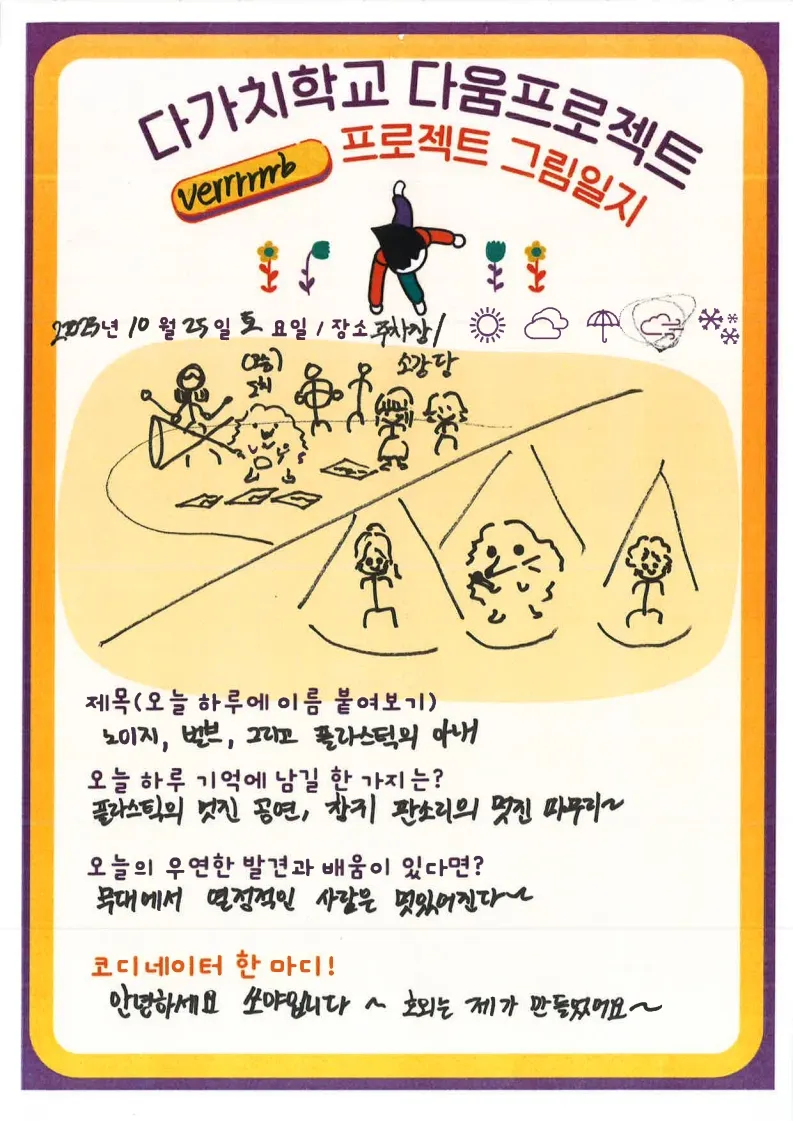 다가치학교 다움프로젝트
verrrrrrb
프로젝트 그림일지
2025년 10월 25일 토 요일 / 장소 주차장/
소강당
제목(오늘 하루에 이름 붙여보기)
노이지, 벌브, 그리고 플라스틱의 아내
오늘 하루 기억에 남길 한 가지는?
플라스틱의 멋진 공연, 참지 판소리의 멋진 마무리~
오늘의 우연한 발견과 배움이 있다면?
무대에서 열정적인 사람은 멋있어진다~
코디네이터 한 마디!
안녕하세요 쏘야입니다 ~ 호외는 제가 만들었어요~